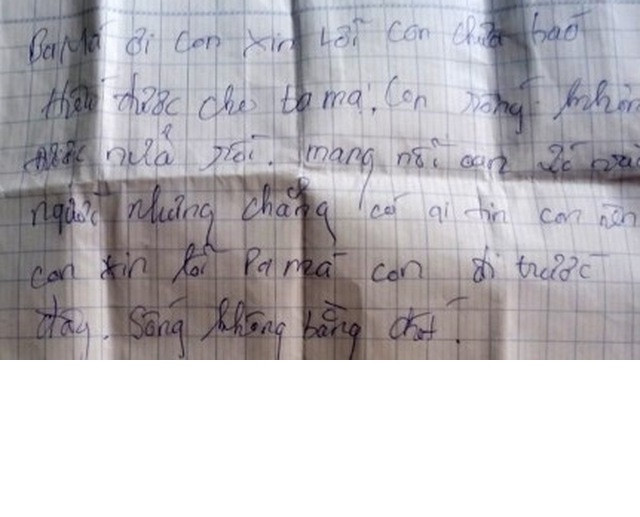 Ba Má ơi con xin lỗi con chưa báo
hiếu được cho ba má. Con sống không
được nữa rồi. mang nỗi oan ức mà
người nhưng chẳng có ai tin con nên
con xin lỗi Pa má con đi trước
đây. Sống không bằng chết.